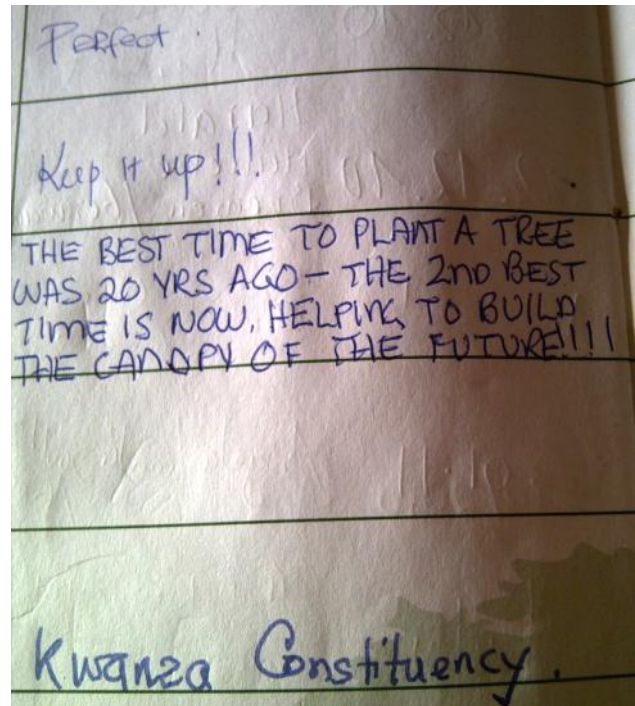 Perfect.
Keep it up!!!
THE BEST TIME TO PLANT A TREE
WAS 20 YRS AGO – THE 2ND BEST
TIME IS NOW. HELPING TO BUILD
THE CANOPY OF THE FUTURE!!!!
Kwanza Constituency.